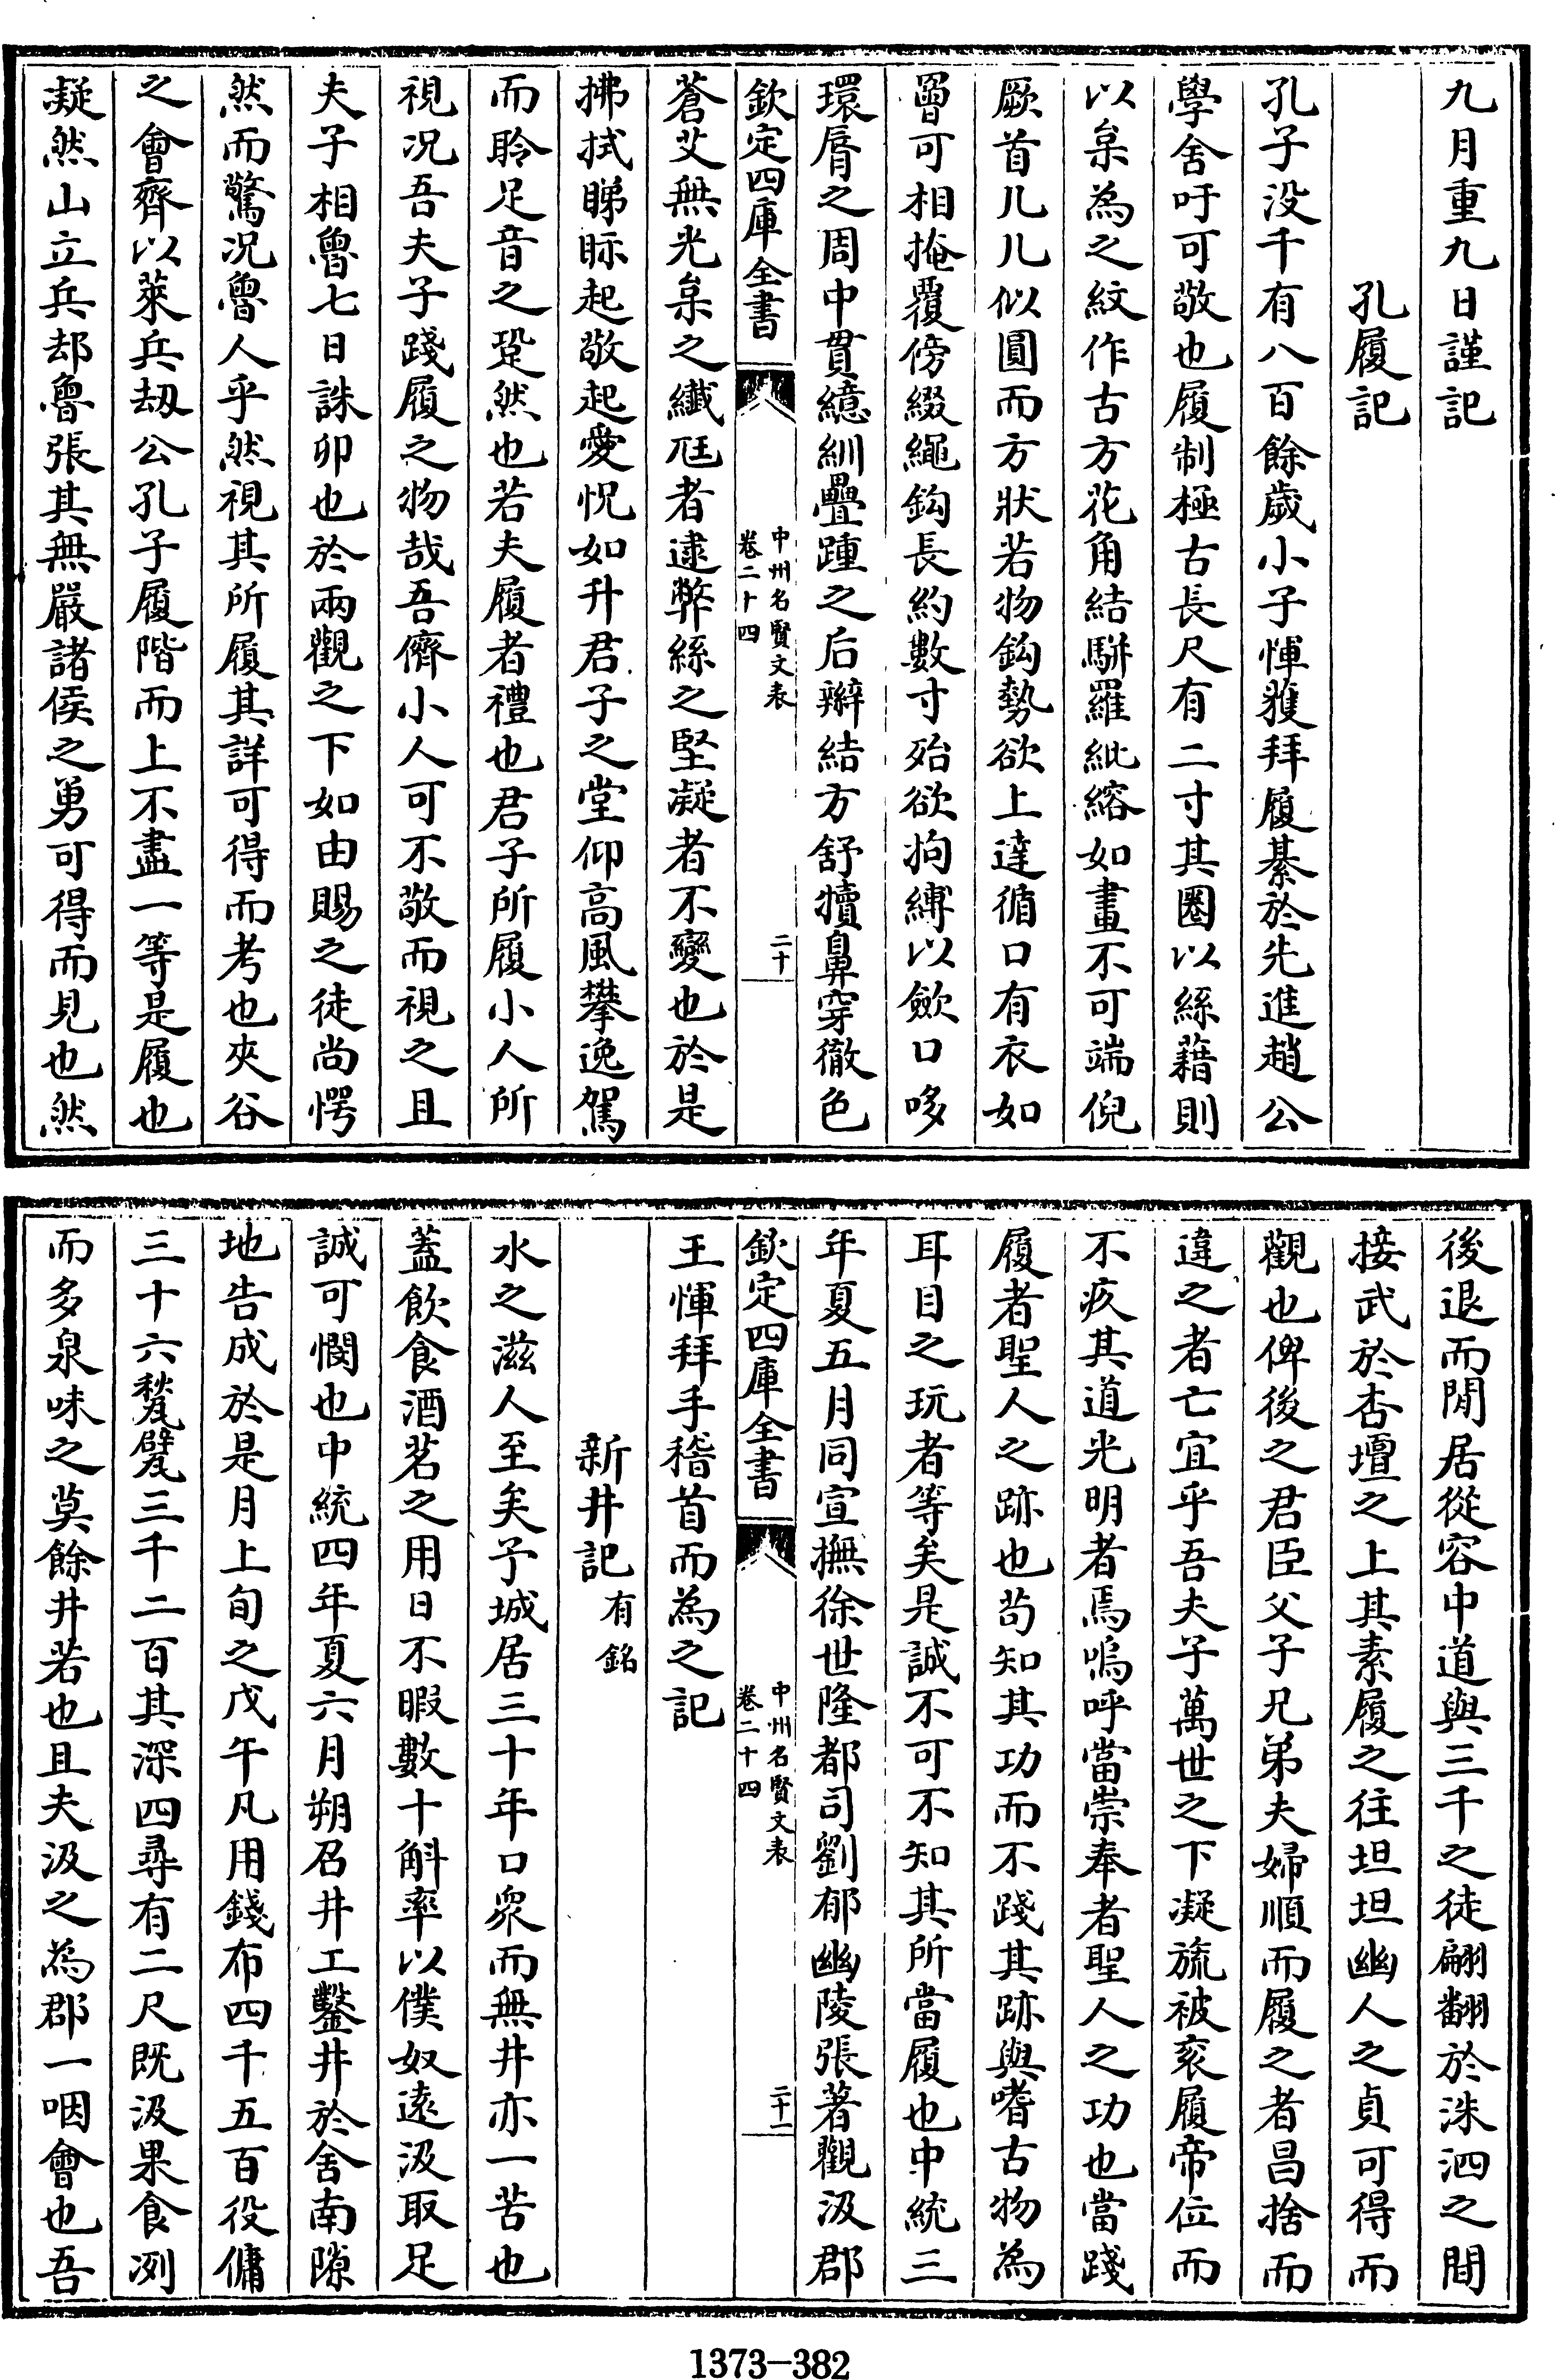 九月重九日謹記
孔履記
孔子没千有八百餘歲小子惲獲拜履綦於先進趙公
學舍吁可敬也履制極古長尺有二寸其圈以絲藉則
以枲為之紋作古方花角結駢羅紕綹如畫不可端倪
厥首儿儿似圓而方狀若物鈎勢欲上達循口有衣如
罾可相掩覆傍綴繩鈎長約數寸殆欲拘縛以斂口哆
環脣之周中貫繶紃疊踵之后辮結方舒犢鼻穿徹色
欽定四庫全書
中州名賢文表
卷二十四
二十
蒼艾無光枲之纖尫者逮弊絲之堅凝者不變也於是
拂拭睇眎起敬起愛怳如升君子之堂仰高風攀逸駕
而聆足音之跫然也若夫履者禮也君子所履小人所
視况吾夫子踐履之物哉吾儕小人可不敬而視之且
夫子相魯七日誅卯也於兩觀之下如由賜之徒尚愕
然而驚况魯人乎然視其所履其詳可得而考也夾谷
之會齊以萊兵刼公孔子履階而上不盡一等是履也
凝然山立兵却魯張其無嚴諸侯之勇可得而見也然
後退而閒居從容中道與三千之徒翩翻於洙泗之間
接武於杏壇之上其素履之往坦坦幽人之貞可得而
觀也俾後之君臣父子兄弟夫婦順而履之者昌捨而
違之者亡宜乎吾夫子萬世之下凝旒被衮履帝位而
不疚其道光明者焉嗚呼當崇奉者聖人之功也當踐
履者聖人之跡也苟知其功而不踐其跡與嗜古物為
耳目之玩者等矣是誠不可不知其所當履也中統三
年夏五月同宣撫徐世隆都司劉郁幽陵張著觀汲郡
欽定四庫全書
中州名賢文表
卷二十四
二十一
王惲拜手稽首而為之記
新井記有銘
水之滋人至矣予城居三十年口眾而無井亦一苦也
蓋飲食酒茗之用日不暇數十斛率以僕奴遠汲取足
誠可憫也中統四年夏六月朔召井工鑿井於舍南隙
地告成於是月上旬之戊午凡用錢布四千五百役傭
三十六甃甓三千二百其深四尋有二尺既汲果食洌
而多泉味之莫餘井若也且夫汲之為郡一咽會也吾
1373-382